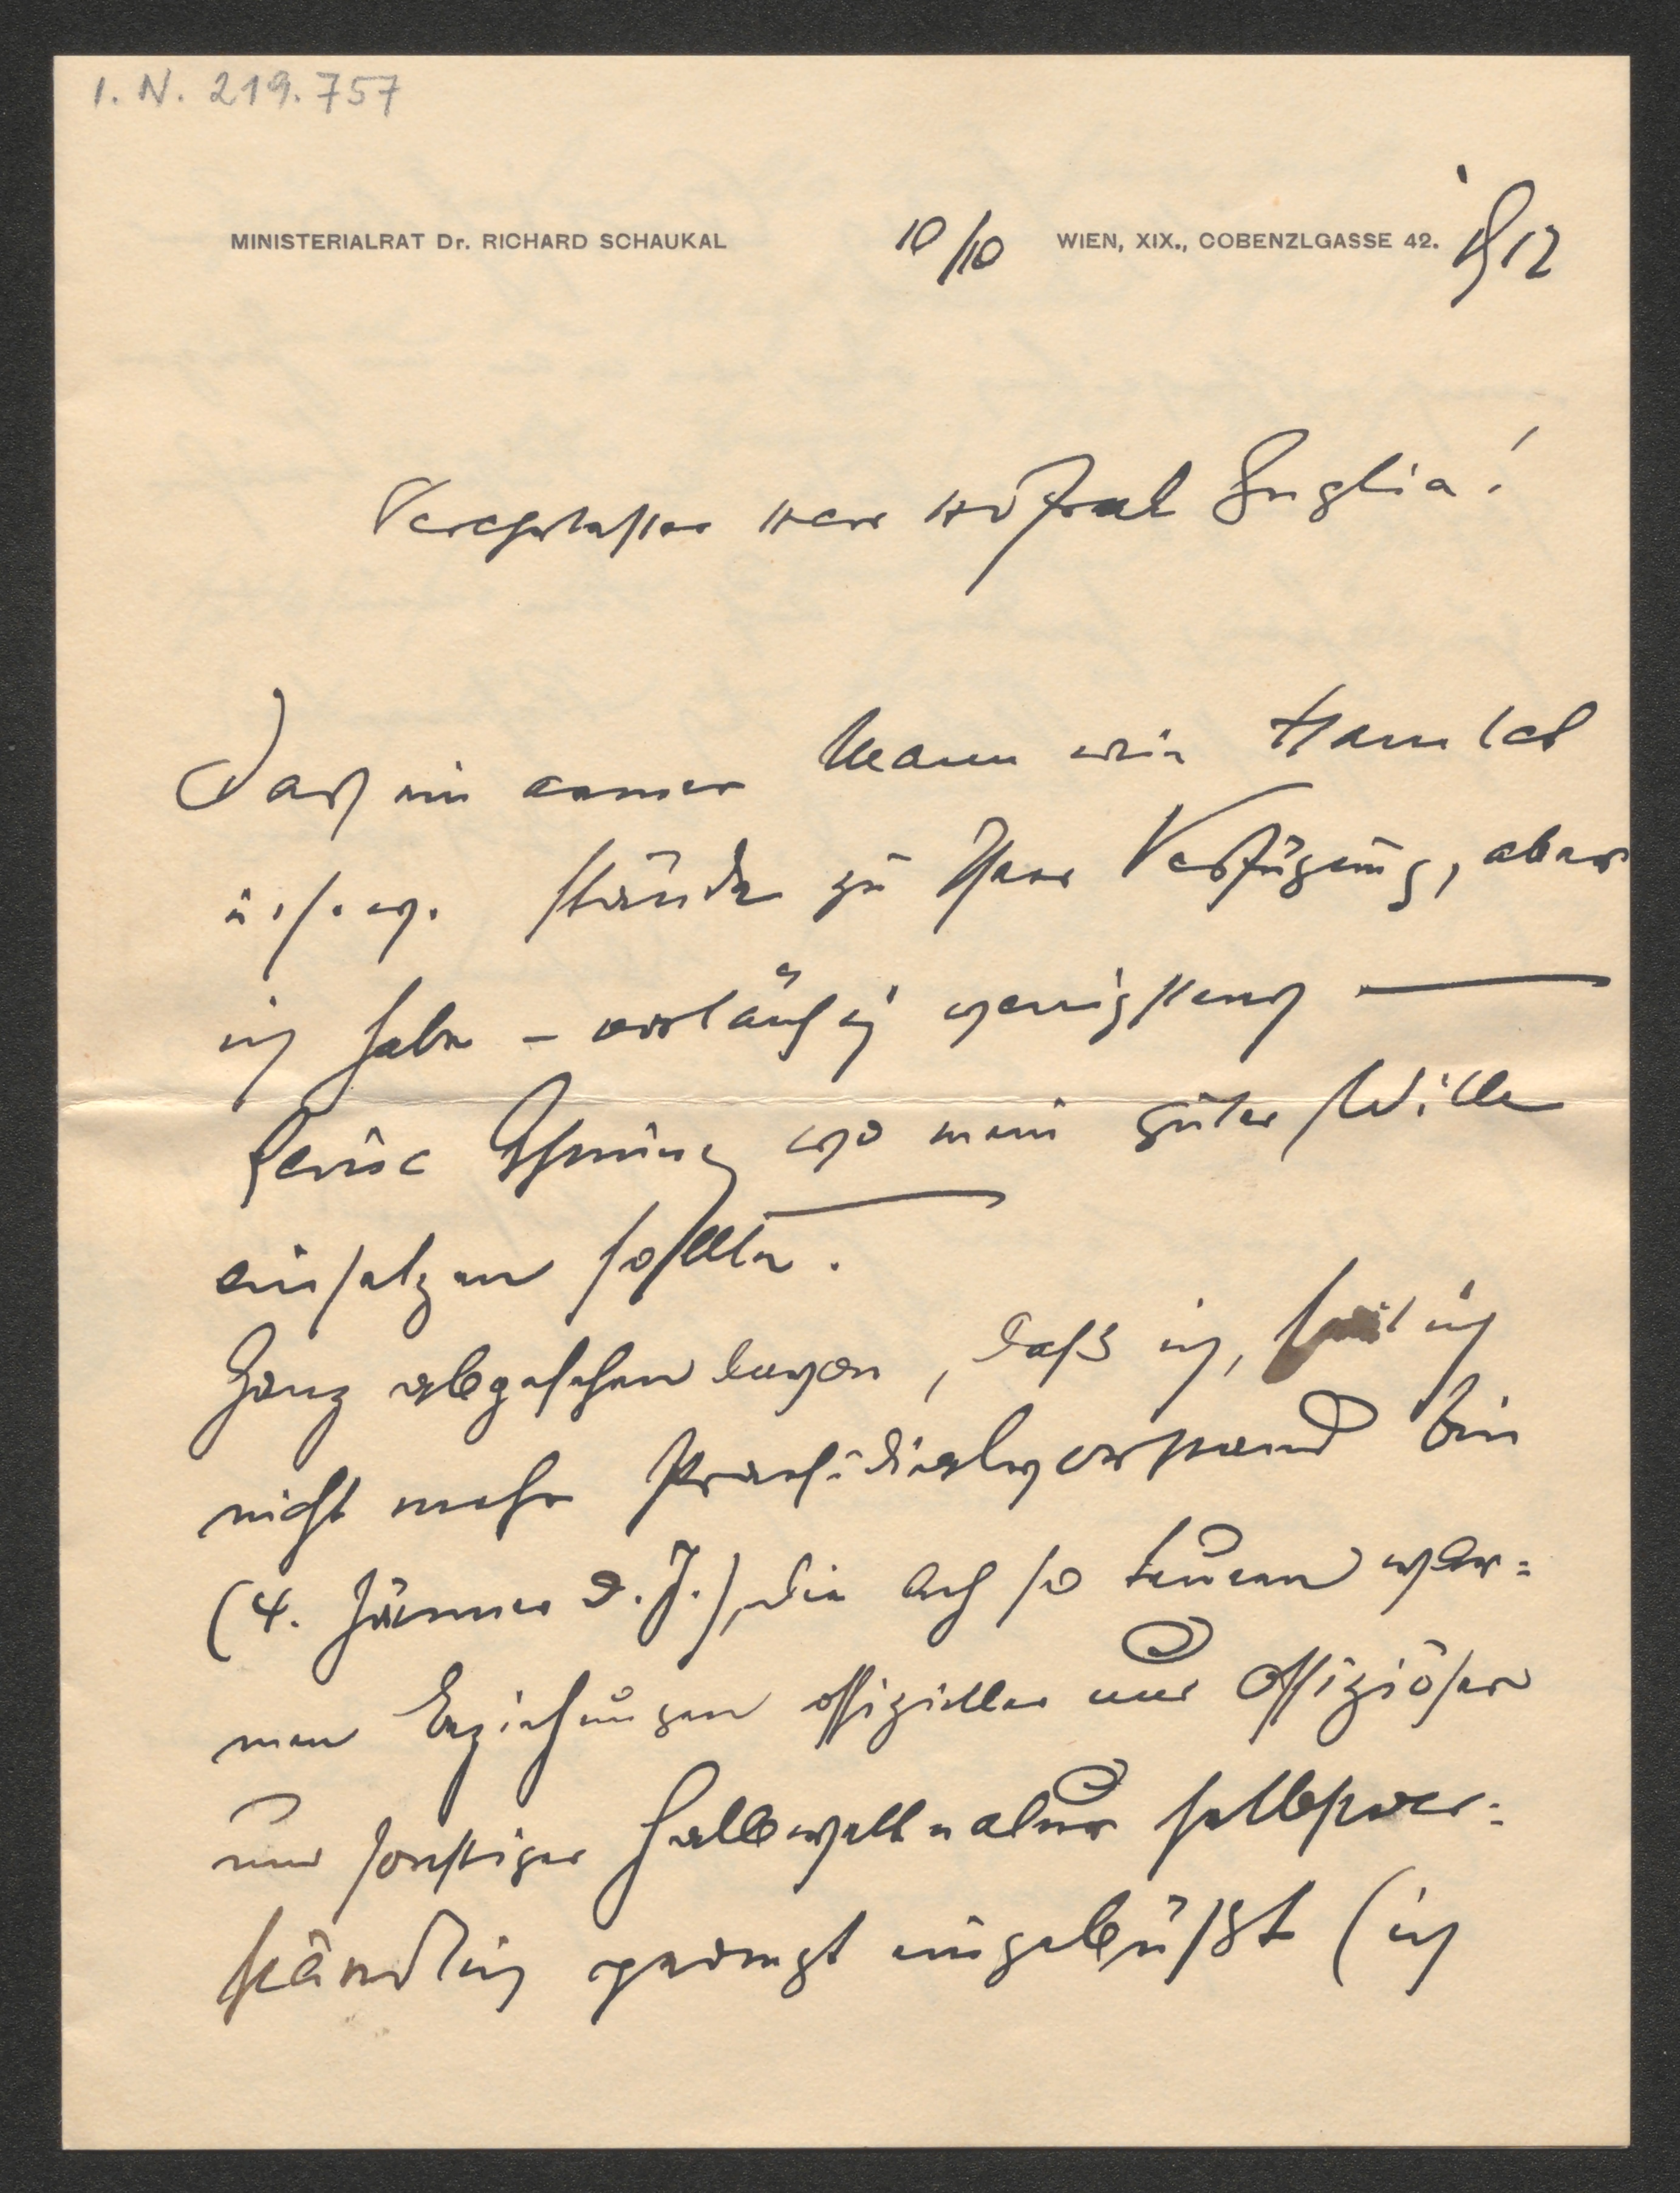 I. N. 219.757
MINISTERIALRAT Dr. RICHARD SCHAUKAL 10/10 WIEN, XIX., COBENZLGASSE 42. 1912
Verehrtester Herr Hofrat Guglia!
Das ein armer Mann wie Hamlet
u. s. w. stünde zu Ihrer Verfügung, aber
ich habe – vorläufig wenigstens –
keine Ahnung wo mein guter Wille
einsetzen sollte.
Ganz abgesehen davon, daß ich, seit ich
nicht mehr Praesidialvorstand bin
(4. Jänner d. J.), die ach so teuern war=
men Beziehungen offizieller und offiziöser
und sonstiger Halbweltnatur selbstver=
ständlich prompt eingebüßt (ich